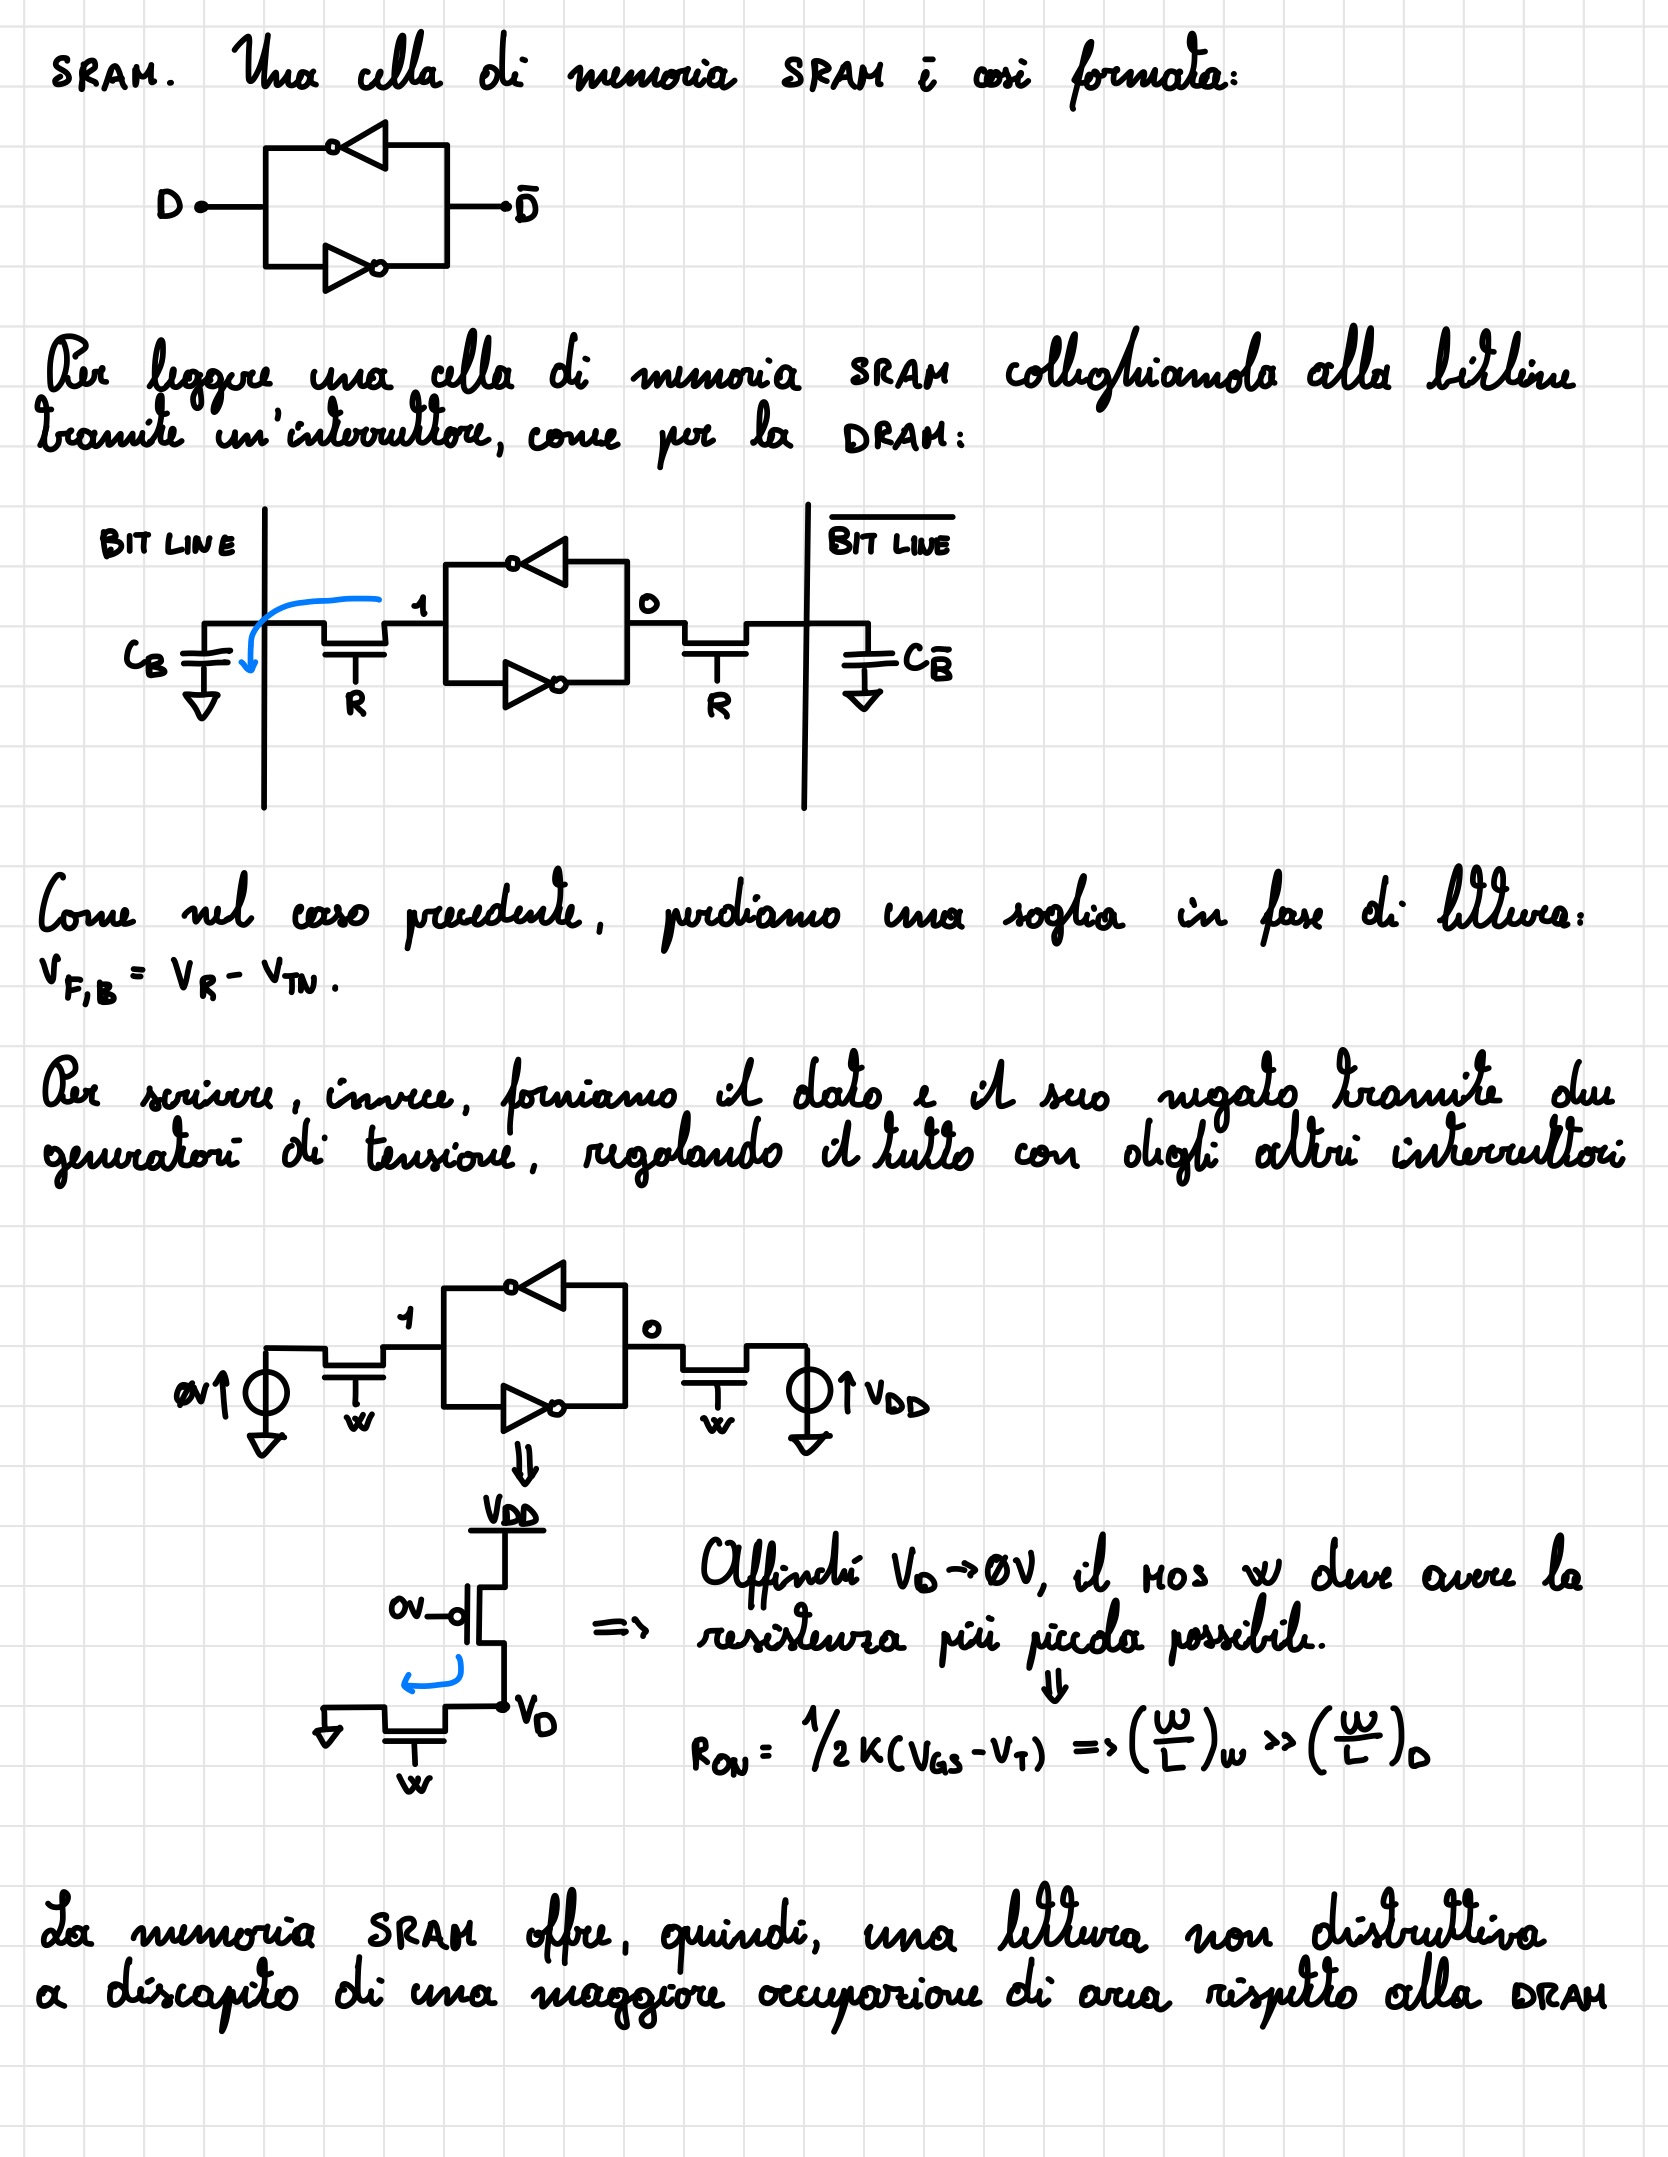 SRAM. Una cella di memoria SRAM è così formata:
D D̅
Per leggere una cella di memoria SRAM colleghiamola alla bitline
tramite un'interruttore, come per la DRAM:
BIT LINE B̅I̅T̅ ̅L̅I̅N̅E̅
1 0
C_B C_B̅
R R
Come nel caso precedente, perdiamo una soglia in fase di lettura:
V_F,B = V_R - V_TN.
Per scrivere, invece, forniamo il dato e il suo negato tramite due
generatori di tensione, regolando il tutto con degli altri interruttori
1 0
0V ↑ ↑ V_DD
W W
⇓
V_DD
Affinché V_D → 0V, il MOS W deve avere la
0V ⇒ resistenza più piccola possibile.
⇓
V_D
R_ON = 1/2K(V_GS - V_T) ⇒ (W/L)_W >> (W/L)_D
W
La memoria SRAM offre, quindi, una lettura non distruttiva
a discapito di una maggiore occupazione di area rispetto alla DRAM